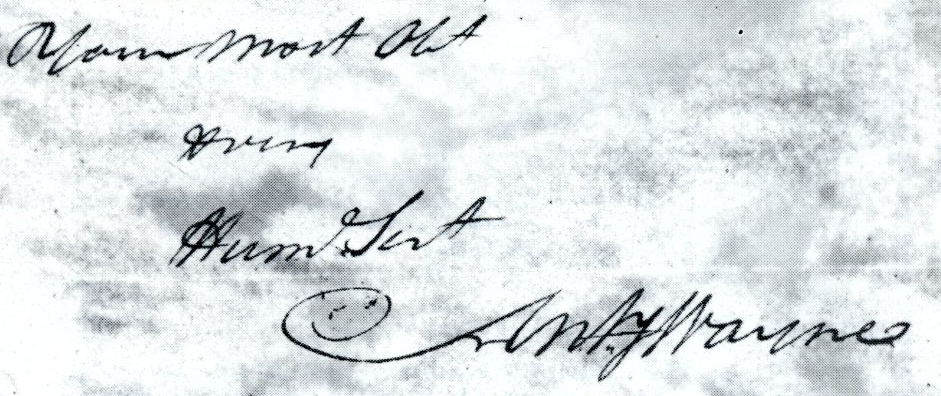 Your Most Obt
Very
Humᵉ Servt
Anty Wayne